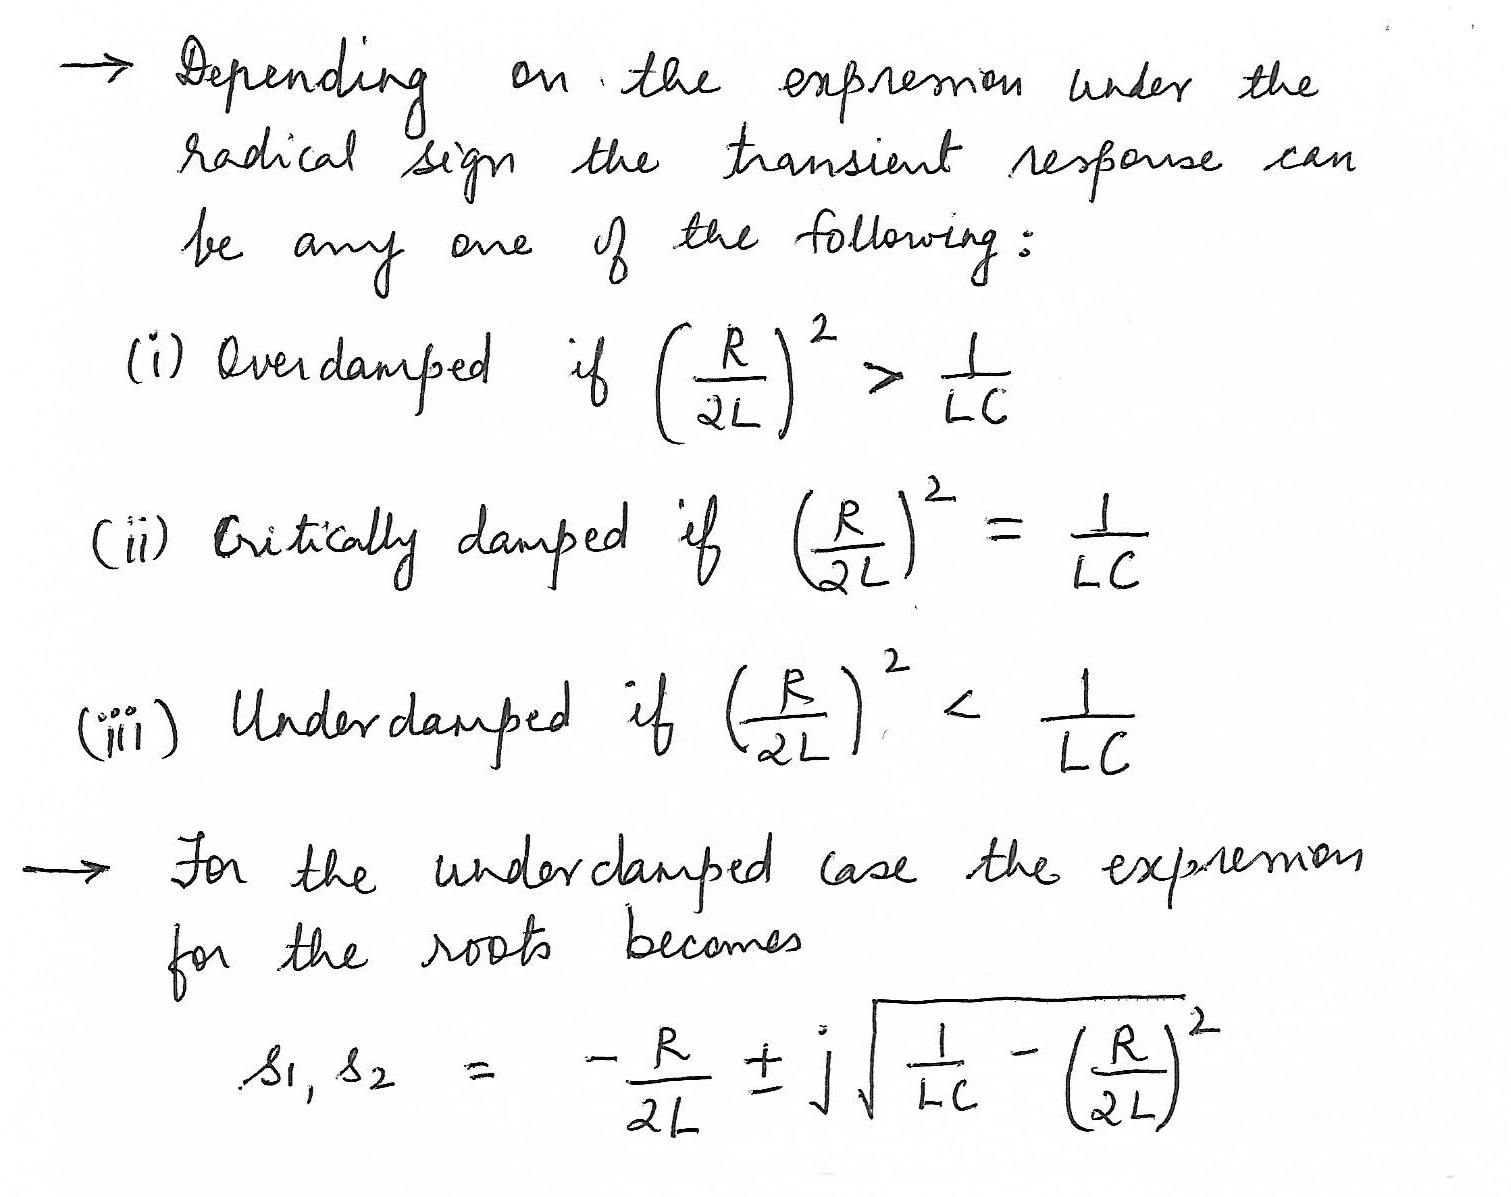 → Depending on the expression under the
radical sign the transient response can
be any one of the following:
(i) Overdamped if (R/2L)² > 1/LC
(ii) Critically damped if (R/2L)² = 1/LC
(iii) Underdamped if (R/2L)² < 1/LC
→ For the underdamped case the expression
for the roots becomes
s₁, s₂ = -R/2L ± j√(1/LC - (R/2L)²)